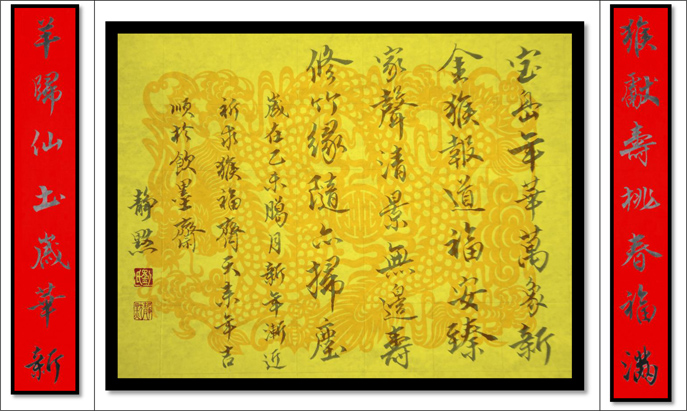 猴獻壽桃春福滿
宝島年華萬象新
金猴報道福安臻
家聲清景無邊壽
修竹緣隨亦掃塵
歲在乙未臘月新年漸近
祈求猴福齊天来年吉
順於飲墨齋
靜默
羊歸仙土歲華新